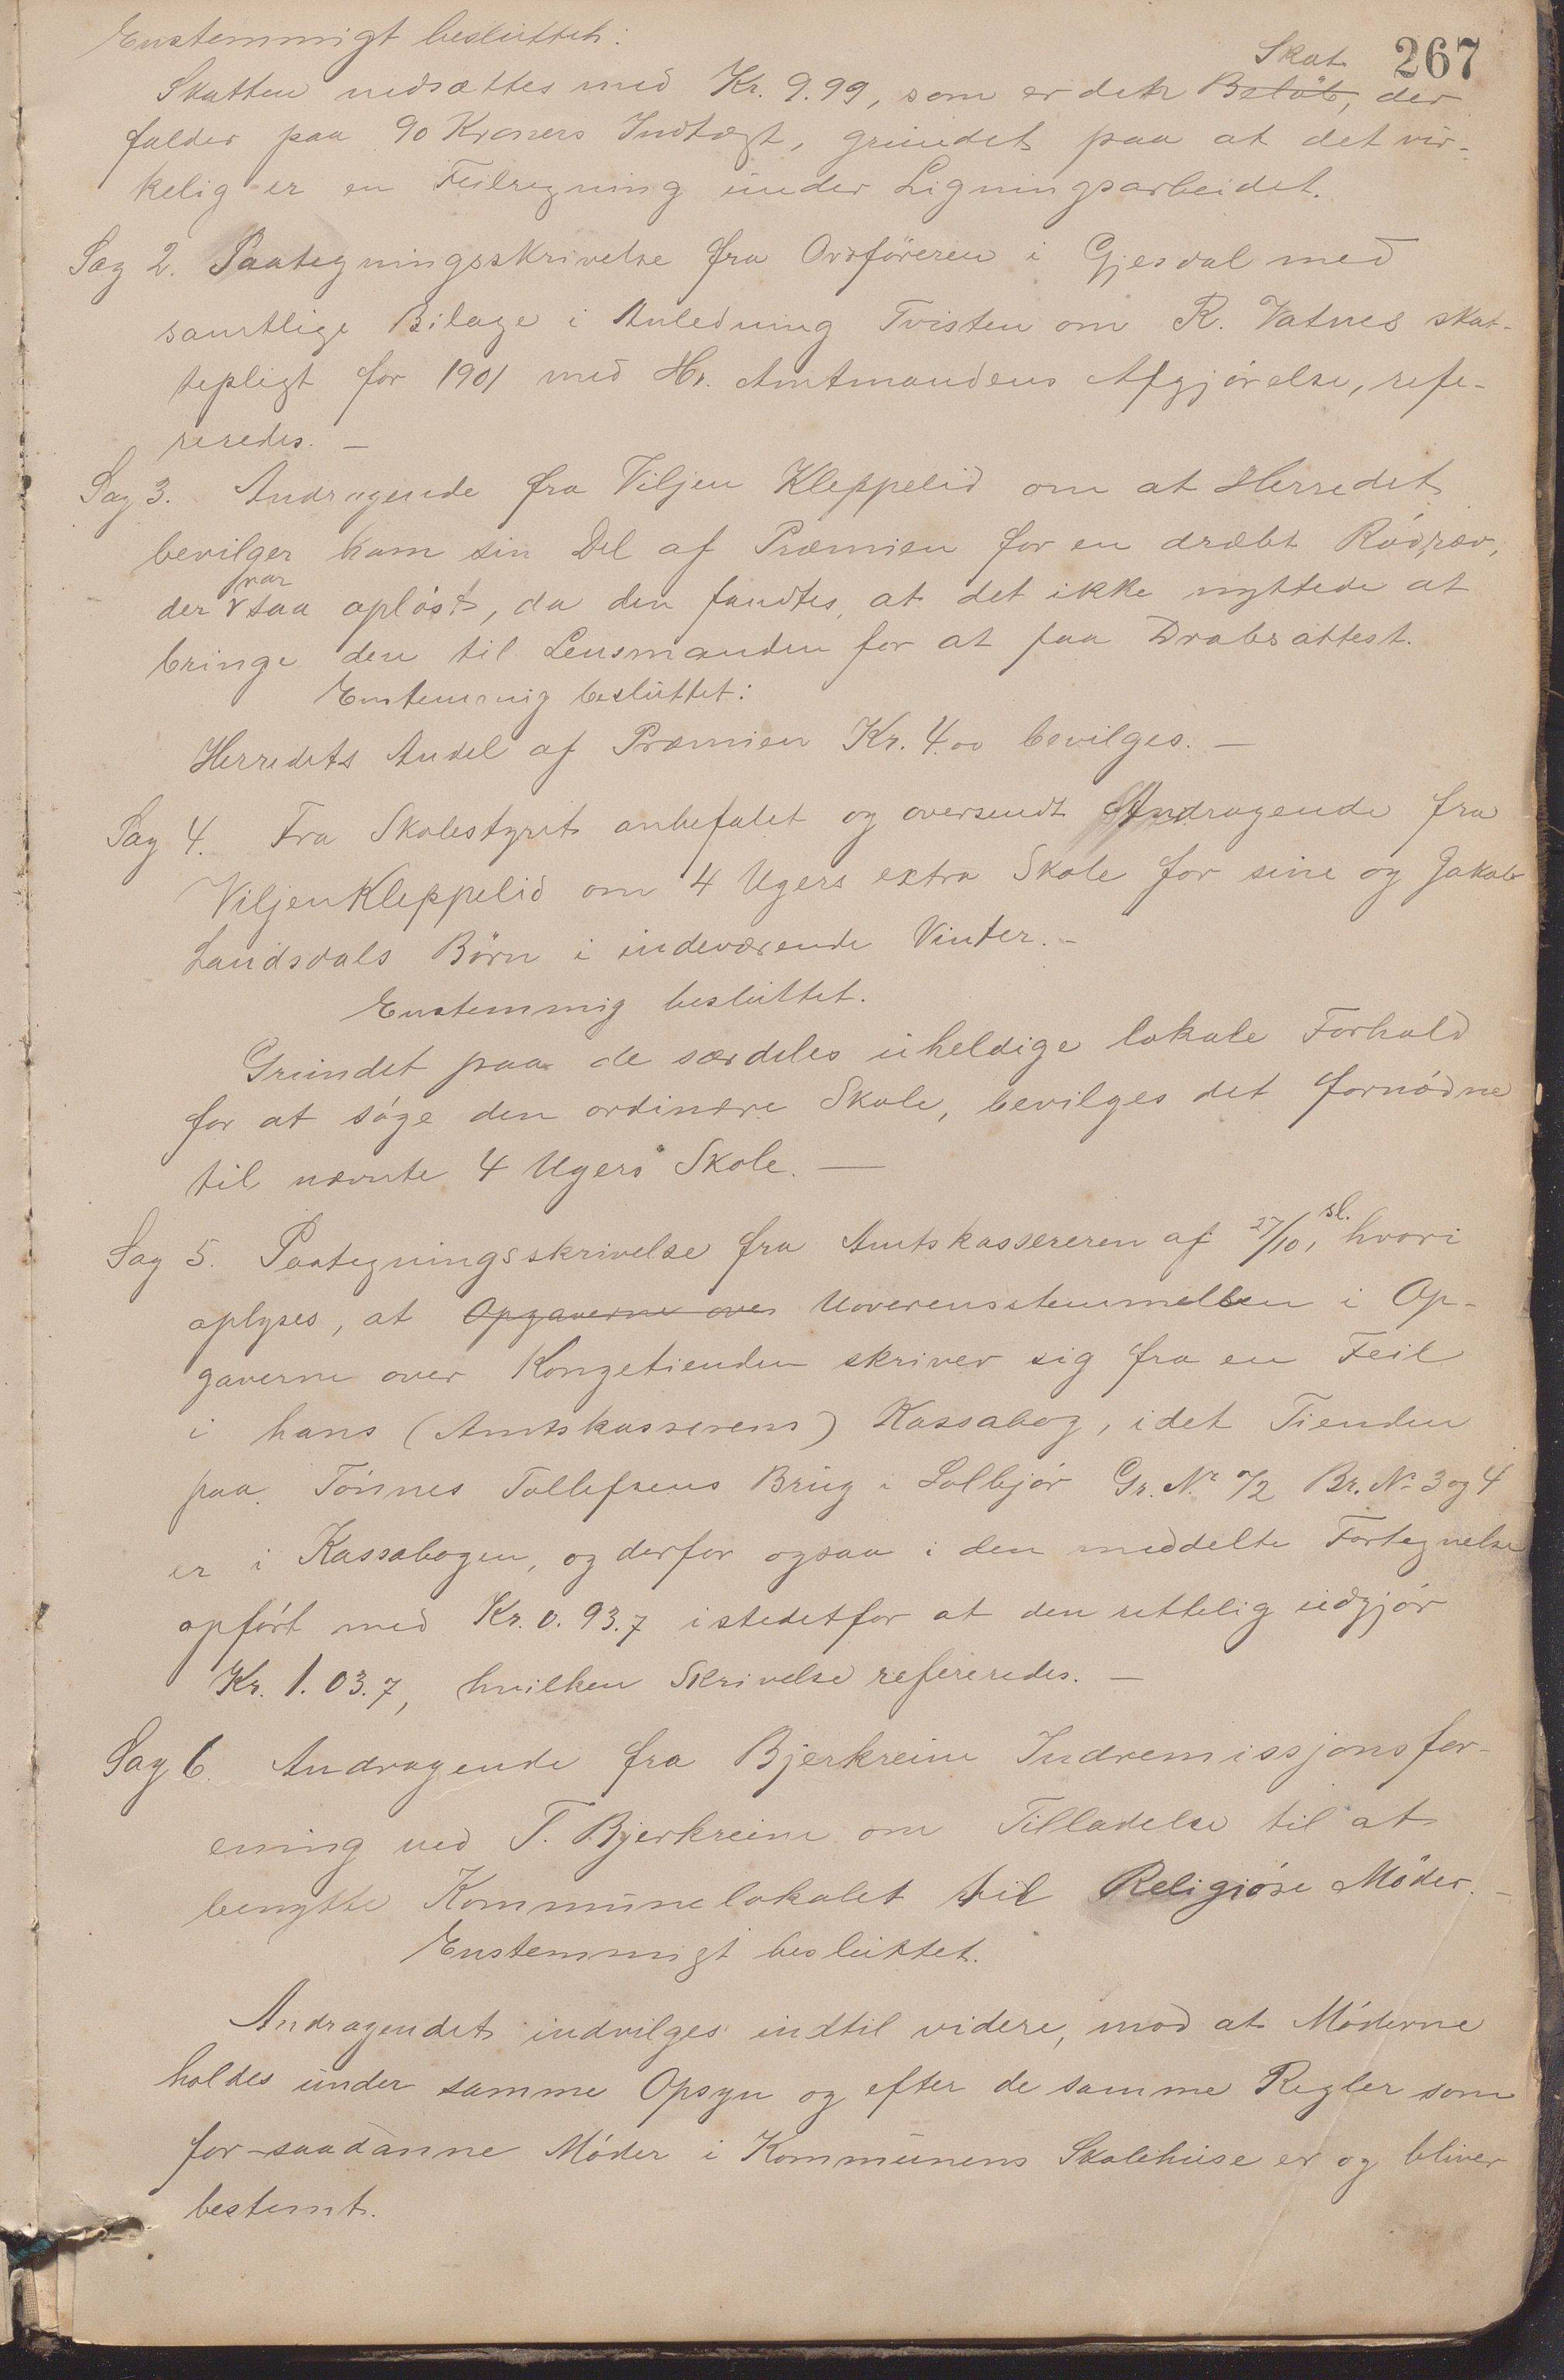 267
Enstemmigt besluttet:
Skatten nedsættes med Kr. 9.99, som er den Beløb, Skat der
falder paa 90 Kroners Indtægt, grundet paa at det vir-
kelig er en Feilregning under Ligningsarbeidet.
Sag 2. Paategningsskrivelse fra Ordføreren i Gjesdal med
samtlige Bilage i Anledning Tvisten om R. Vatnes skat-
tepligt for 1901 med Hr. Amtmandens Afgjørelse, refe-
reredes. —
Sag 3. Andragende fra Viljen Kleppelid om at Herredet
bevilger ham sin Del af Præmien for en dræbt Rødræv,
der var saa opløst, da den fandtes, at det ikke nyttede at
bringe den til Lensmanden for at faa Drabsattest.
Enstemmig besluttet:
Herredets Andel af Præmien Kr. 4.00 bevilges. —
Sag 4. Fra Skolestyret anbefalet og oversendt Andragende fra
Viljen Kleppelid om 4 Ugers extra Skole for sine og Jakob
Laudsdals Børn i indeværende Vinter. -
Enstemmig besluttet.
Grundet paa de særdeles uheldige lokale Forhold
for at søge den ordinære Skole, bevilges det fornødne
til nævnte 4 Ugers Skole. —
Sag 5. Paategningsskrivelse fra Amtskassereren af 27/10 sl., hvori
oplyses, at Opgaverne over Uoverensstemmelsen i Op-
gaverne over Kongetienden skriver sig fra en Feil
i hans (Amtskasserens) Kassabog, idet Tienden
paa Tønnes Tollefsens Brug i Solbjør Gr. Nr. 72 Br. Nr 3 og 4
er i Kassabogen, og derfor ogsaa i den meddelte Fortegnelse
opført med Kr. 0.93.7 istedetfor at den rettelig udgjør
Kr. 1.03.7, hvilken Skrivelse refereredes. —
Sag 6. Andragende fra Bjerkreim Indremissjonsfor-
ening ved T. Bjerkreim om Tilladelse til at
benytte Kommunelokalet til Religiøse Møder. -
Enstemmigt besluttet.
Andragendet indvilges indtil videre, mod at Møderne
holdes under samme Opsyn og efter de samme Regler som
for saadanne Møder i Kommunens Skolehuse er og bliver
bestemt.